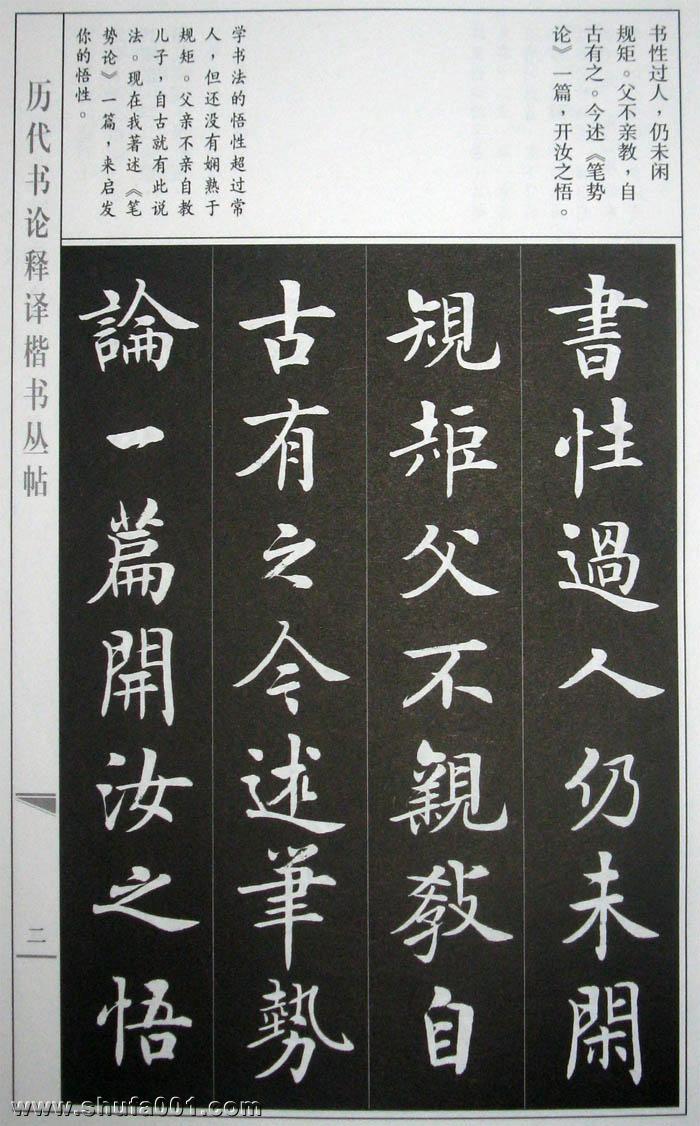 书性过人，仍未闲
规矩。父不亲教，自
古有之。今述《笔势
论》一篇，开汝之悟。
学书法的悟性超过常
人，但还没有娴熟于
规矩。父亲不亲自教
儿子，自古就有此说
法。现在我著述《笔
势论》一篇，来启发
你的悟性。
書性過人仍未閑
規矩父不親教自
古有之今述筆勢
論一篇開汝之悟
历代书论释译楷书丛帖
二
www.shufa001.com